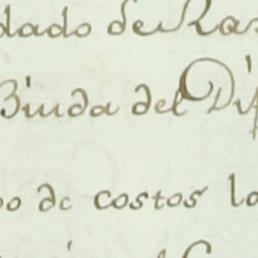 dado de Ras
Biuda del Dif
po de costos lo